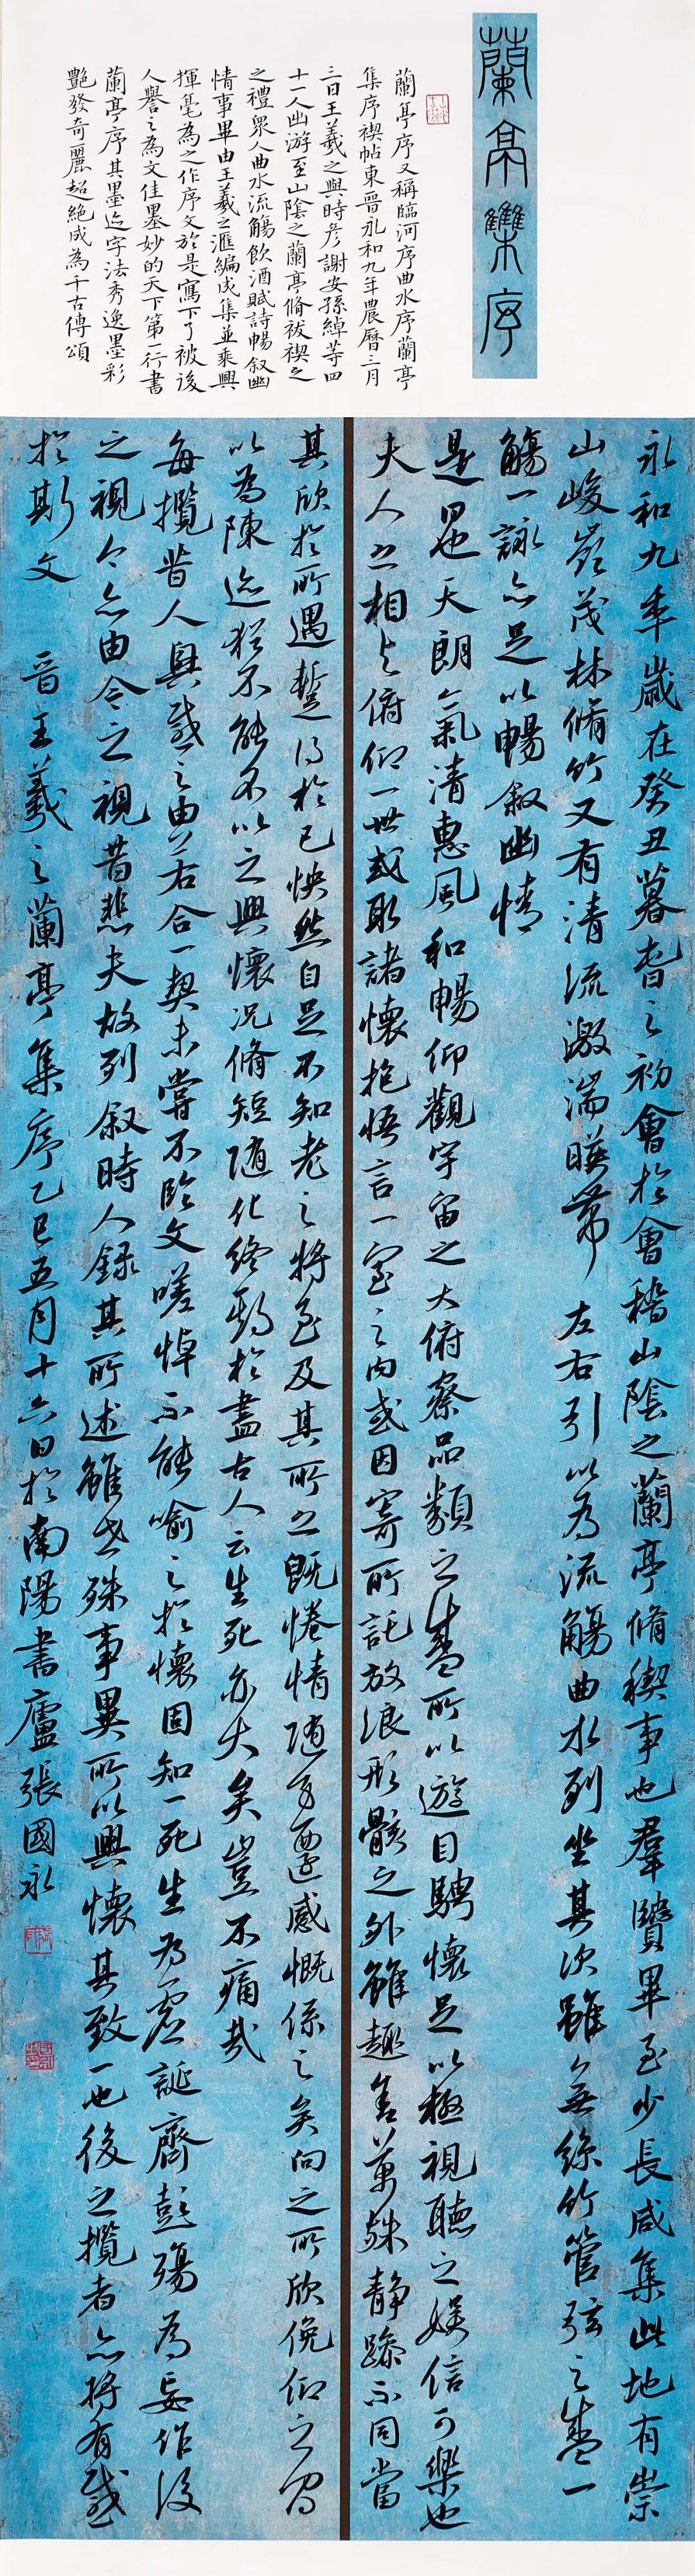 蘭亭集序
蘭亭序又稱臨河序曲水序蘭亭
集序禊帖東晋永和九年農曆三月
三日王羲之與時彦謝安孫綽等四
十一人幽游至山陰之蘭亭脩祓禊之
之禮衆人曲水流觴飲酒賦詩暢叙幽
情事畢由王羲之滙編成集並乘興
揮毫為之作序文於是寫下了被後
人譽之為文佳墨妙的天下第一行書
蘭亭序其墨迹字法秀逸墨彩
艷發奇麗超絶成為千古傳頌
永和九年歲在癸丑暮春之初會於會稽山陰之蘭亭脩禊事也羣賢畢至少長咸集此地有崇
山峻嶺茂林脩竹又有清流激湍暎帶左右引以為流觴曲水列坐其次雖無絲竹管弦之盛一
觴一詠亦足以暢叙幽情
是日也天朗氣清惠風和暢仰觀宇宙之大俯察品類之盛所以遊目騁懷足以極視聽之娱信可樂也
夫人之相與俯仰一世或取諸懷抱悟言一室之内或因寄所託放浪形骸之外雖趣舎萬殊静躁不同當
其欣於所遇蹔得於己怏然自足不知老之將至及其所之既惓情随事遷感慨係之矣向之所欣俛仰之間
以為陳迹猶不能不以之興懷况脩短随化終期於盡古人云生死亦大矣豈不痛哉
每攬昔人興感之由若合一契未嘗不臨文嗟悼不能喻之於懷固知一死生為虚誕齊彭殤為妄作後
之視今亦由今之視昔悲夫故列叙時人録其所述雖世殊事異所以興懷其致一也後之攬者亦將有感
於斯文 晋王羲之蘭亭集序乙巳五月十六日於南陽書廬張國永